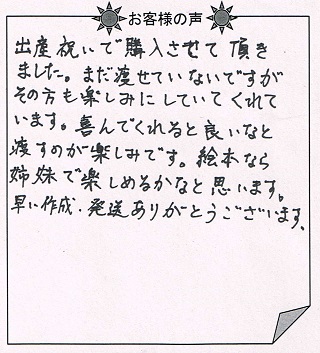 お客様の声
出産祝いで購入させて頂き
ました。まだ渡せていないですが
その方も楽しみにしていてくれて
います。喜んでくれると良いなと
渡すのが楽しみです。絵本なら
姉妹で楽しめるかなと思います。
早い作成・発送ありがとうございます。